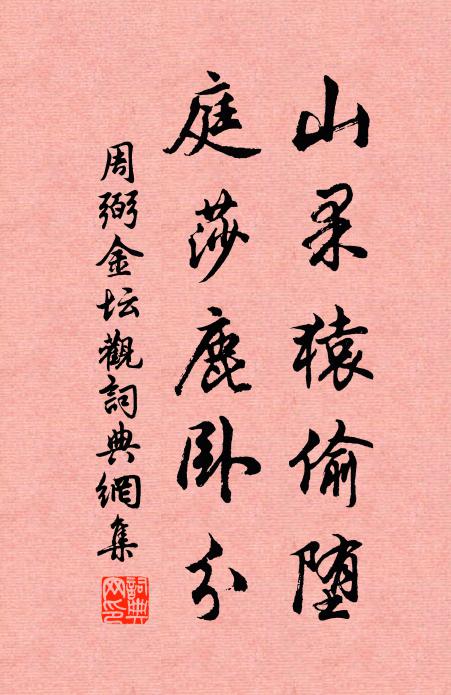 山果猿偷堕
庭莎鹿卧分
周弼金坛觀詞典網集
詞典網印